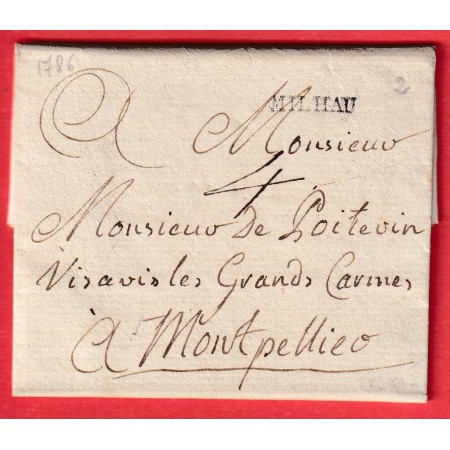 1786
2
MILHAU
A Monsieur
4
Monsieur De Poitevin
Visavis les Grands Carmes
A Montpellier